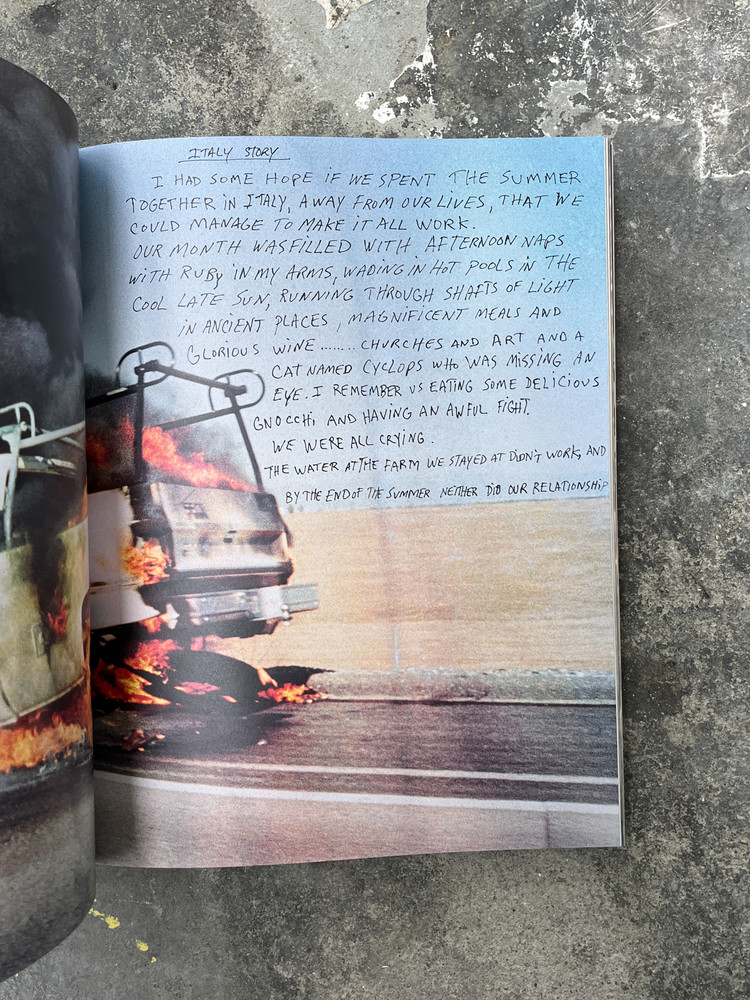 ITALY STORY
I HAD SOME HOPE IF WE SPENT THE SUMMER
TOGETHER IN ITALY, AWAY FROM OUR LIVES, THAT WE
COULD MANAGE TO MAKE IT ALL WORK.
OUR MONTH WAS FILLED WITH AFTERNOON NAPS
WITH RUBY IN MY ARMS, WADING IN HOT POOLS IN THE
COOL LATE SUN, RUNNING THROUGH SHAFTS OF LIGHT
IN ANCIENT PLACES, MAGNIFICENT MEALS AND
GLORIOUS WINE........CHURCHES AND ART AND A
CAT NAMED CYCLOPS WHO WAS MISSING AN
EYE. I REMEMBER US EATING SOME DELICIOUS
GNOCCHI AND HAVING AN AWFUL FIGHT.
WE WERE ALL CRYING.
THE WATER AT THE FARM WE STAYED AT DIDN'T WORK, AND
BY THE END OF THE SUMMER NEITHER DID OUR RELATIONSHIP